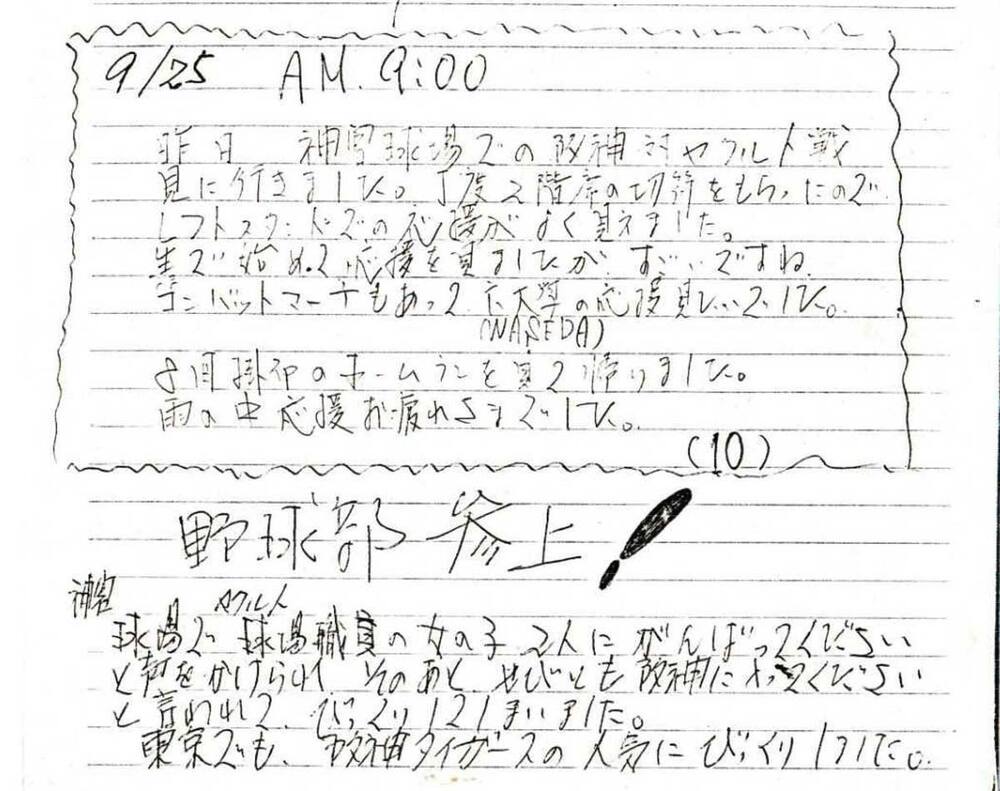 9/25 A.M. 9:00
昨日 神宮球場での阪神対ヤクルト戦
見に行きました。丁度2階席の切符をもらったので
レフトスタンドでの応援がよく見えました。
生で始めて応援を見ましたが、すごいですね
コンバットマーチもあって、六大学の応援見たいでした。
(WASEDA)
8回掛布のホームランを見て帰りました。
雨の中応援お疲れさまでした。
(10)
野球部 参上!
神宮 ヤクルト
球場で 球場職員の女の子2人にがんばってください
と声をかけられ、そのあと ぜひとも阪神に勝ってください
と言われて、びっくりしてしまいました。
東京でも、阪神タイガースの人気にびっくりしました。